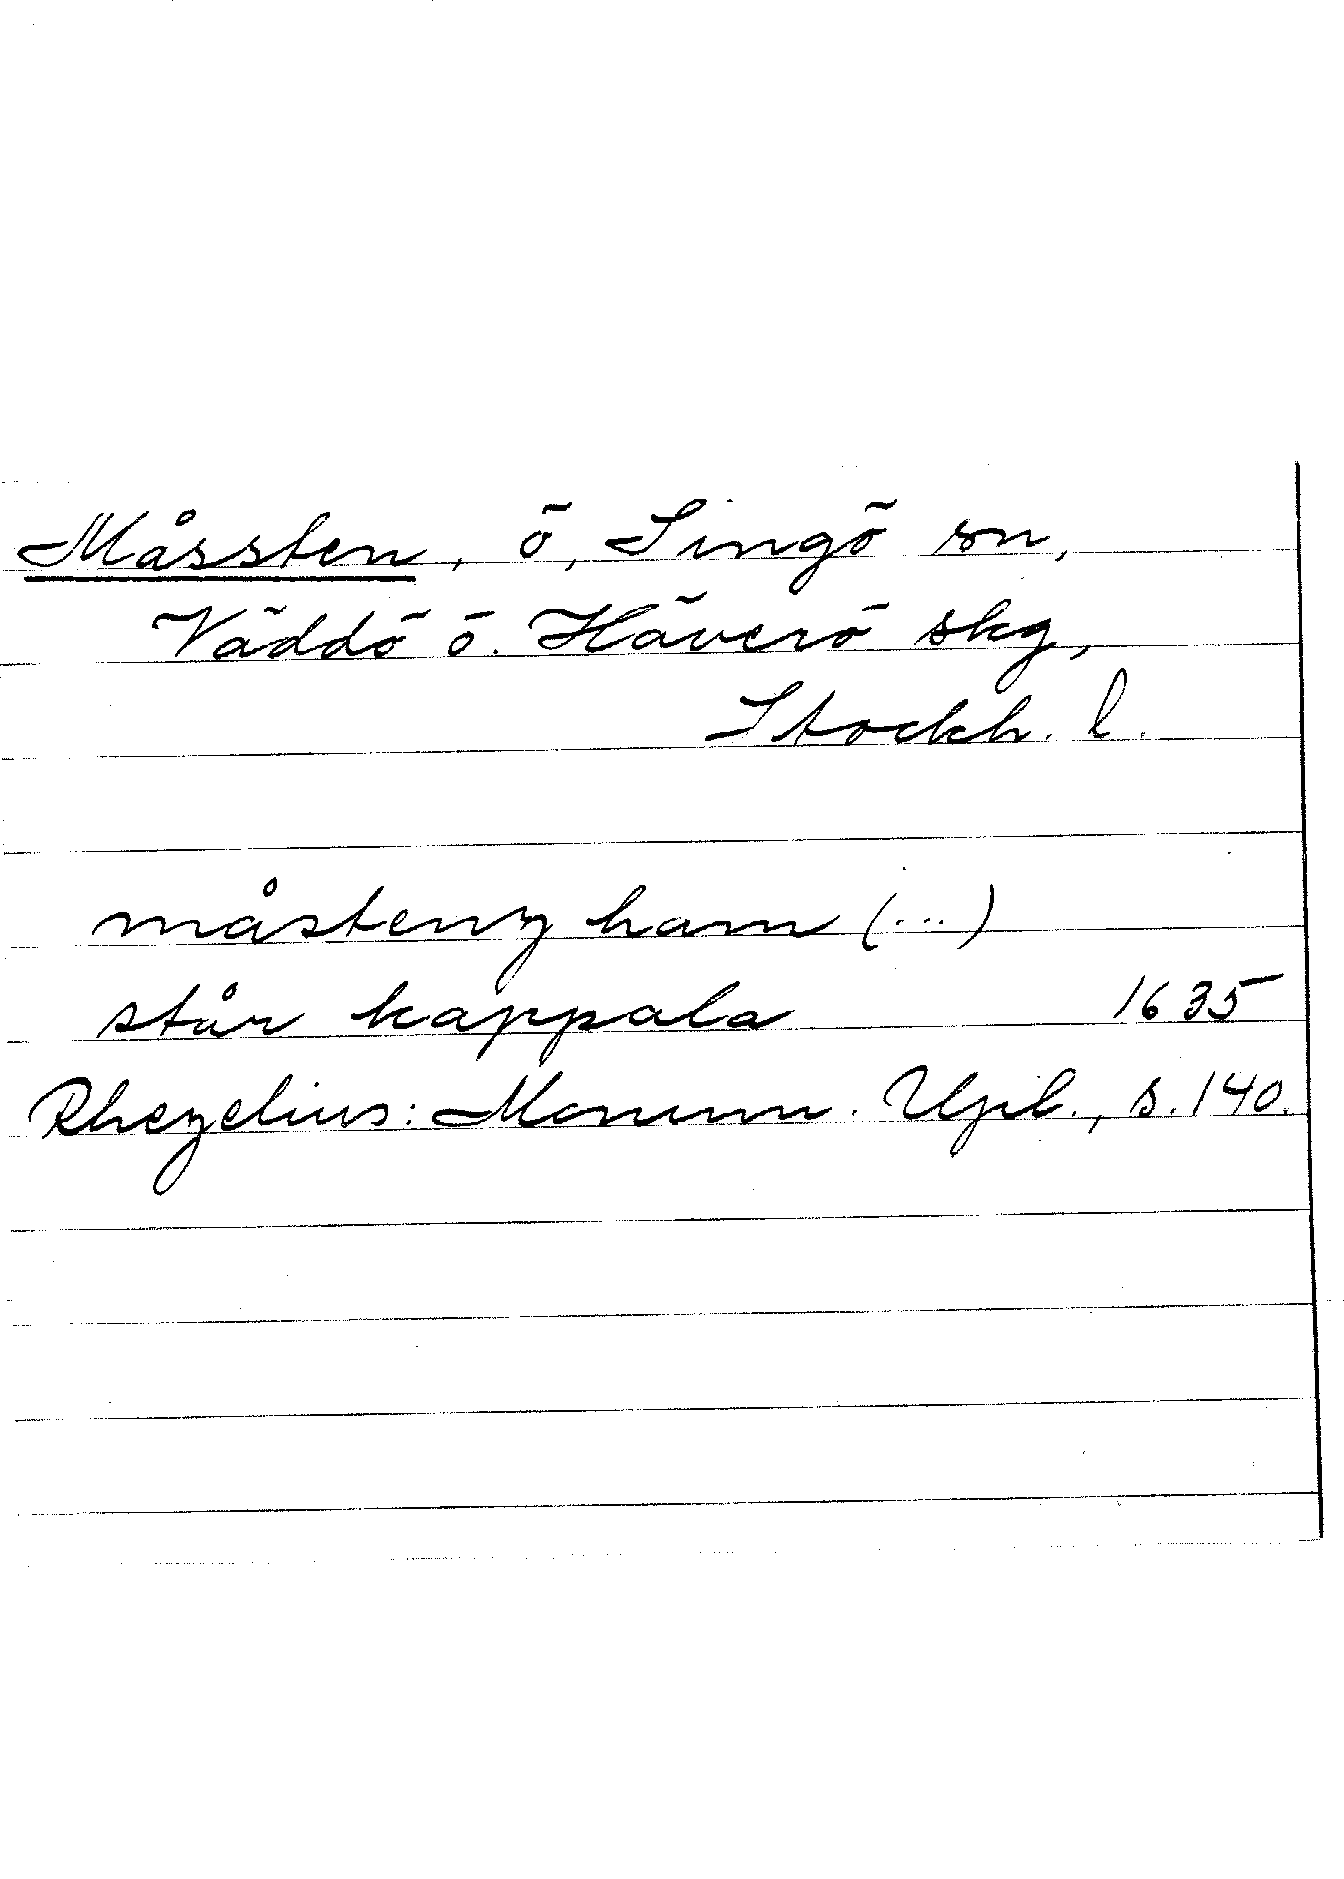 Måssten, ö, Singö sn,
Väddö o. Häverö skg,
Stockh. l.
måstenz ham (...)
står kappala 1635
Rhezelius: Monum. Upl., s. 140.